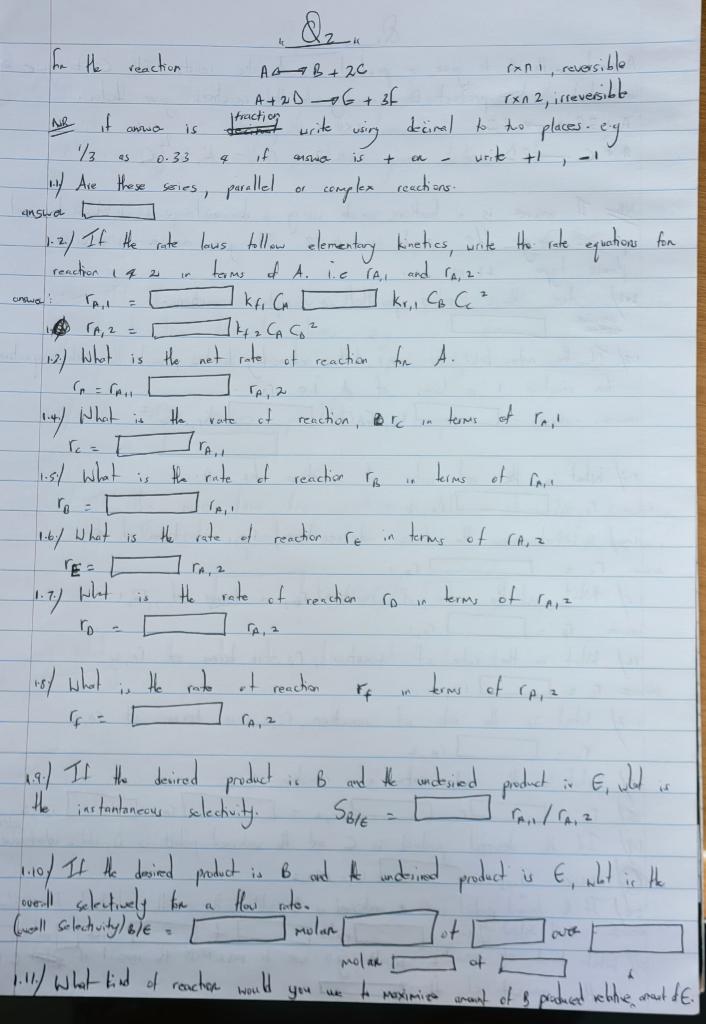 "Q2"
for the reaction A ⇌ B + 2C rxn 1, reversible
A + 2D → E + 3F rxn 2, irreversible
NB if answer is fraction write using decimal to two places. e.g
1/3 as 0.33 & if answer is + or - write +1, -1
1.1) Are these series, parallel or complex reactions.
answer
1.2) If the rate laws follow elementary kinetics, write the rate equations for
reaction 1 & 2 in terms of A. i.e rA,1 and rA,2.
answer: rA,1 = kf,1 CA kr,1 CB Cc²
rA,2 = kf2 CA CD²
1.3) What is the net rate of reaction for A.
rA = rA,1 rA,2
1.4) What is the rate of reaction, rc in terms of rA,1
rc = rA,1
1.5) What is the rate of reaction rB in terms of rA,1
rB = rA,1
1.6) What is the rate of reaction rE in terms of rA,2
rE = rA,2
1.7) What is the rate of reaction rD in terms of rA,2
rD = rA,2
1.8) What is the rate of reaction rf in terms of rA,2
rf = rA,2
1.9) If the desired product is B and the undesired product is E, what is
the instantaneous selectivity. SB/E = rA,1 / rA,2
1.10) If the desired product is B and the undesired product is E, what is the
overall selectively for a flow rate.
(overall selectivity) B/E = molar of over
molar of
1.11) What kind of reactor would you use to maximize amount of B produced relative amount of E.